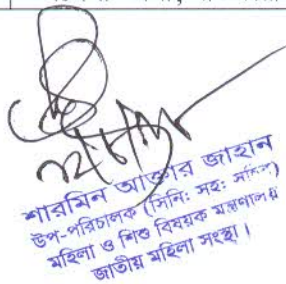 শারমিন আক্তার জাহান
উপ-পরিচালক (সিনি: সহ: সচিব)
মহিলা ও শিশু বিষয়ক মন্ত্রণালয়
জাতীয় মহিলা সংস্থা।